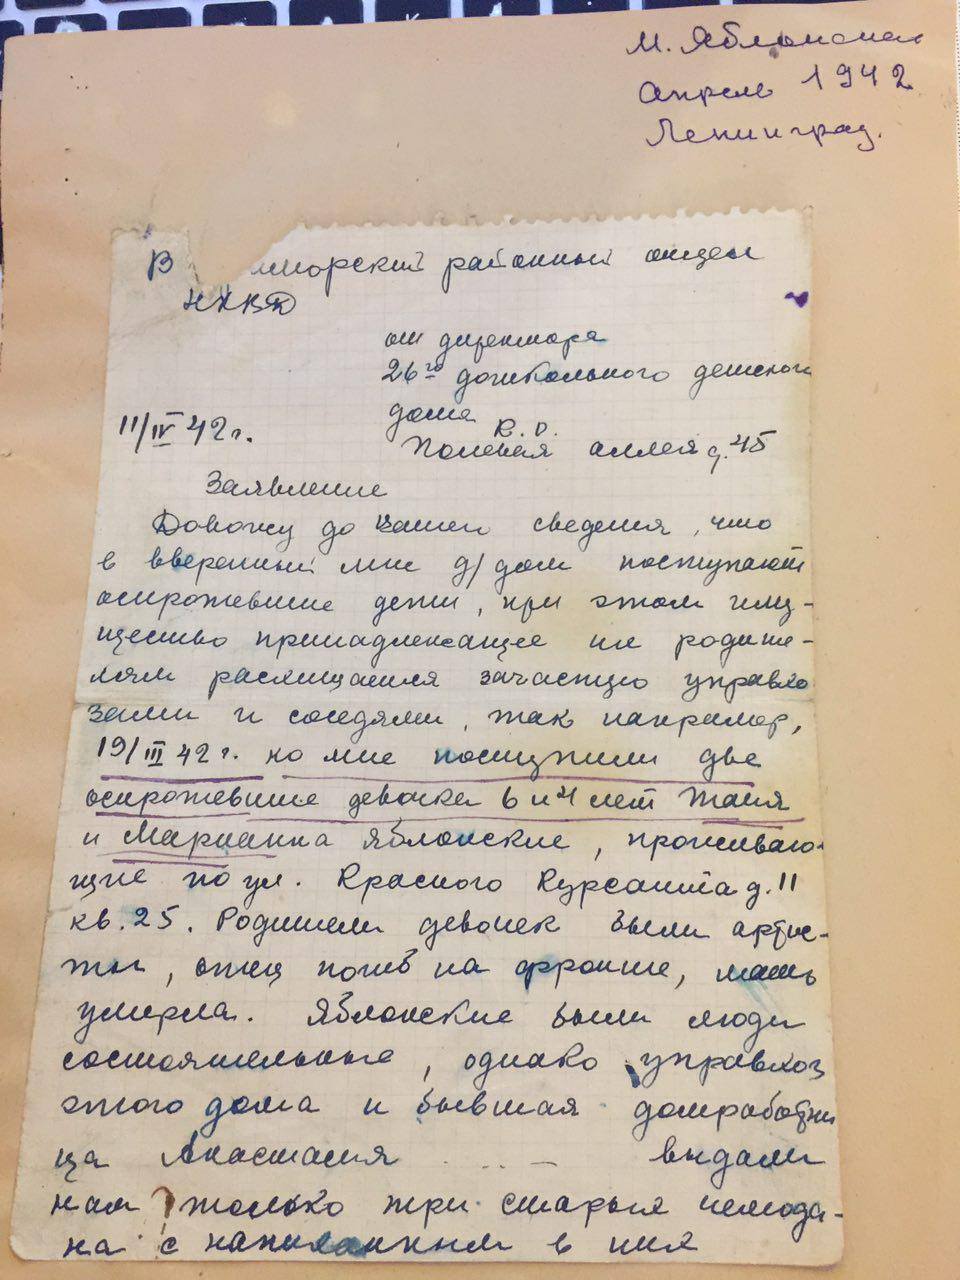 М. Яблонская
Апрель 1942
Ленинград.
В морский районный отдел
НКВД
от директора
26го дошкольного детского
дома
Полевая аллея д.45
11/IV 42 г.
Заявление
Довожу до вашего сведения, что
в вверенный мне д/дом поступают
осиротевшие дети, при этом иму-
щество принадлежащее их родите-
лям расхищается зачастую управхо
зами и соседями, так например,
19/III 42 г. ко мне поступили две
осиротевшие девочки 6 и 4 лет Таня
и Марианна Яблонские, проживаю-
щие по ул. Красного Курсанта д.11
кв.25. Родители девочек были артис-
ты, отец погиб на фронте, мать
умерла. Яблонские были люди
состоятельные, однако управхоз
этого дома и бывшая домработни
ца Анастасия ... — выдали
нам только три старых чемода-
на с напиханным в них